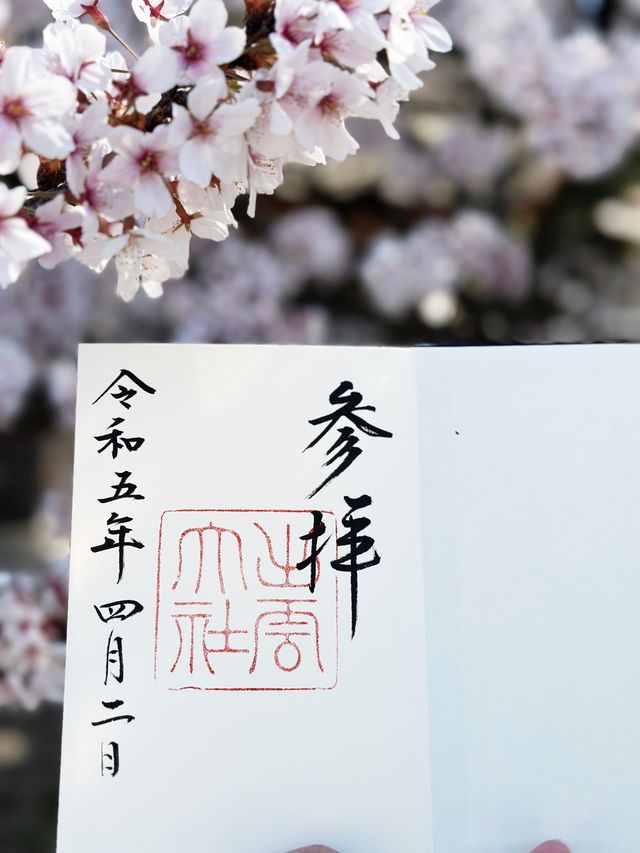 参拝
出雲
大社
令和五年四月二日